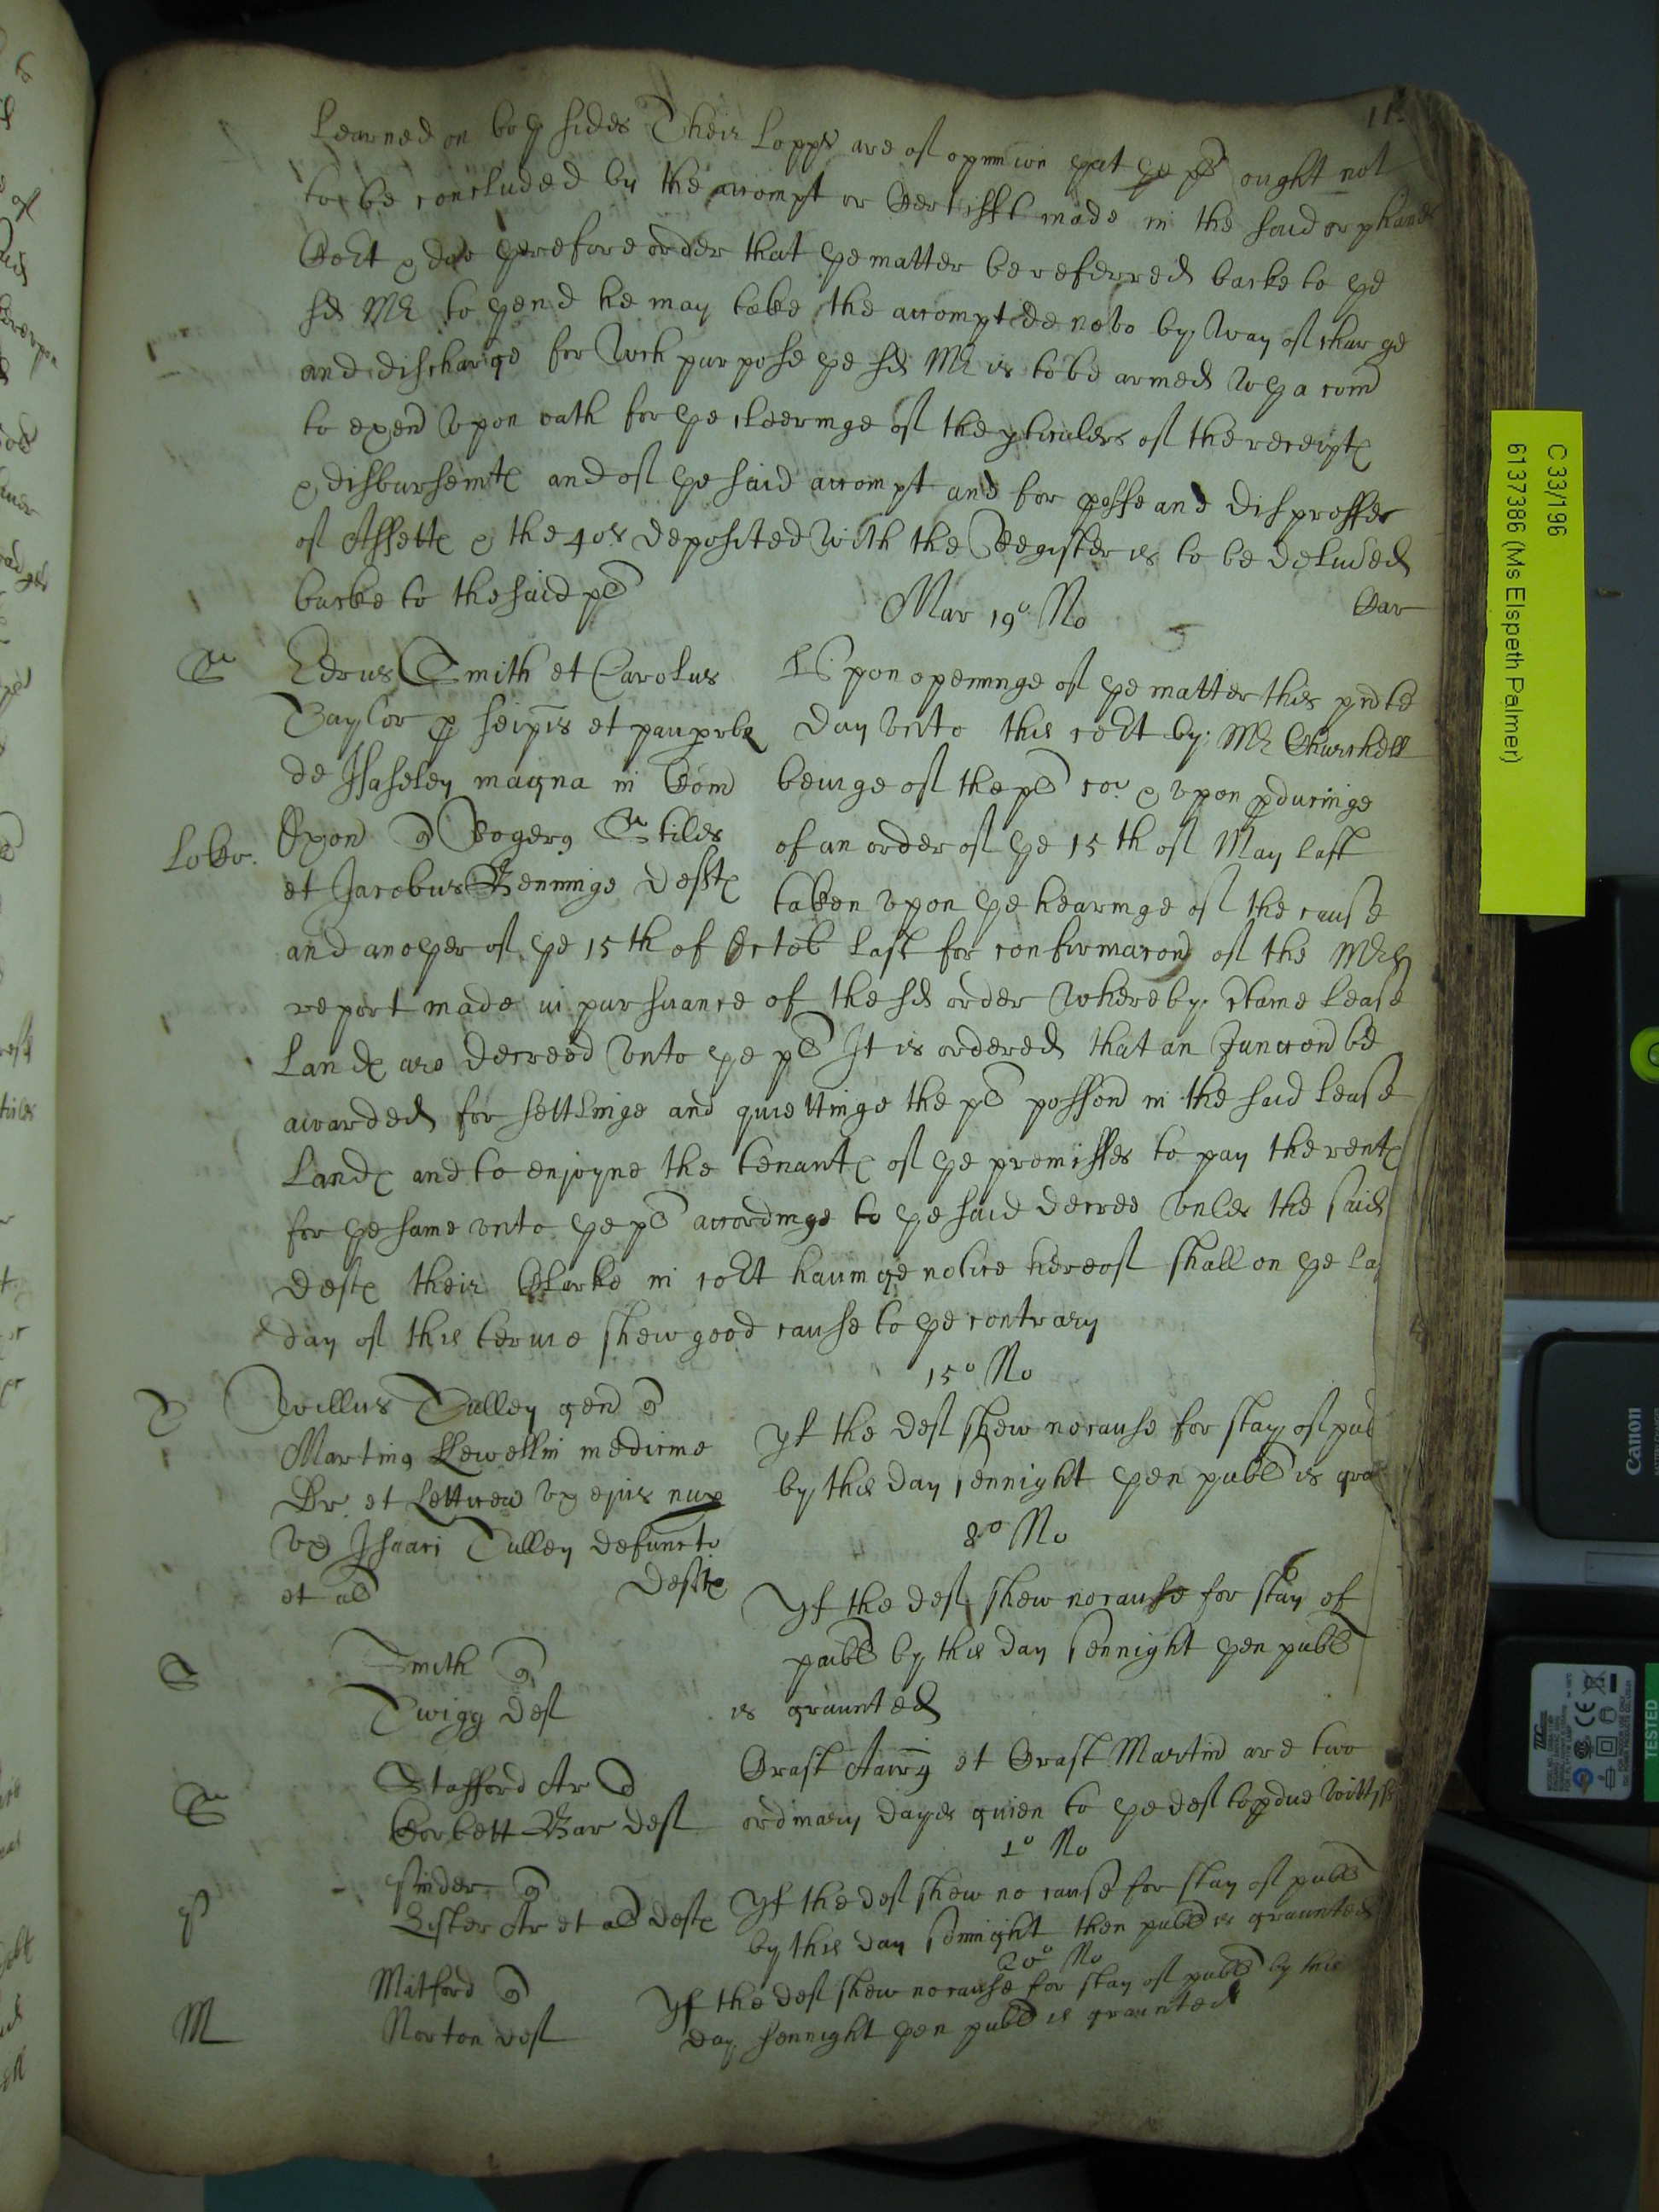 11
Learned on both sides Their Lopps are of opinnion that the pl ought not
to be concluded by the accompt or Certifft made in the said orphanes
Cort & doe therefore order that the matter be referred backe to the
sd Mr to thend he may take the accompt de novo by way of charge
and discharge for wch purpose the sd Mr is to be armed wth a com
to exend upon oath for the cleeringe of the pticulers of the receipts
& disbursemts and of the said accompt and for
of Assetts & the 40s deposited with the Register is to be deliued
backe to the said pl
Car
Mar 19o No
S
Edrus Smith et Carolus
Taylor p seipis et paupbz
de Haseley magna in Com
Oxon Rogerg Stiles
et Jacobus Benninge defts
Upon openinge of the matter this pnte
day unto this cort by Mr Churchell
beinge of the pl co & upon pducinge
of an order of the 15th of May last
taken upon the hearinge of the cause
and another of the 15th of Octob last for confirmacon of the Mrs
report made in pursuance of the sd order whereby ctaine Lease
Lands are decreed unto the pl It is ordered that an Junccon be
awarded for settlinge and quiettinge the pl possion in the said Lease
Lands and to enjoyne the tenants of the premisses to pay the rents
for the same unto the pl accordinge to the said decree unles the said
defts their Clarke in cort hauinge notice hereof shall on the la
day of this terme shew good cause to the contrary
15o No
T
Willus Tulley gen
Marting Llewellin medicine
Dr et Letticea ux ejus nup
ux Isaaci Tulley defuncto
et al defts
Yf the def shew no cause for stay of pub
by this day sennight then publ is gra
8o No
S
Smith
Twigg def
Yf the def shew no cause for stay of
publ by this day sennight then publ
is graunted
S
Stafford Ar
Corbett Bar def
Crast et Crast Martin are two
ordinary dayes giuen to the def to pdue wittss
1o No
P
Pinder
Lister Ar et al defts
Yf the def shew no cause for stay of publ
by this day sennight then publ is graunted
20o No
M
Mitford
Norton def
Yf the def shew no cause for stay of publ by this
day sennight then publ is graunted
C 33/196
6137386 (Ms Elspeth Palmer)
Canon
TESTED